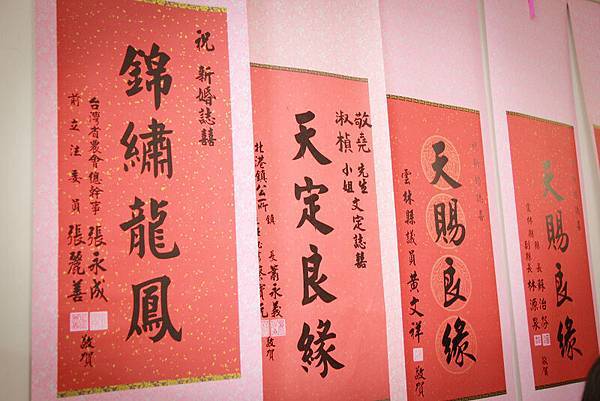 祝 新婚誌囍
錦繡龍鳳
台灣省農會總幹事 張永成
前立法委員 張麗善
敬賀
敬堯 先生
淑楨 小姐
文定誌囍
天定良緣
北港鎮公所 鎮長 蕭永義
敬賀
天賜良緣
雲林縣議員 黃文祥
敬賀
天賜良緣
縣長 蘇治芬
雲林縣副縣長 林源泉
敬賀